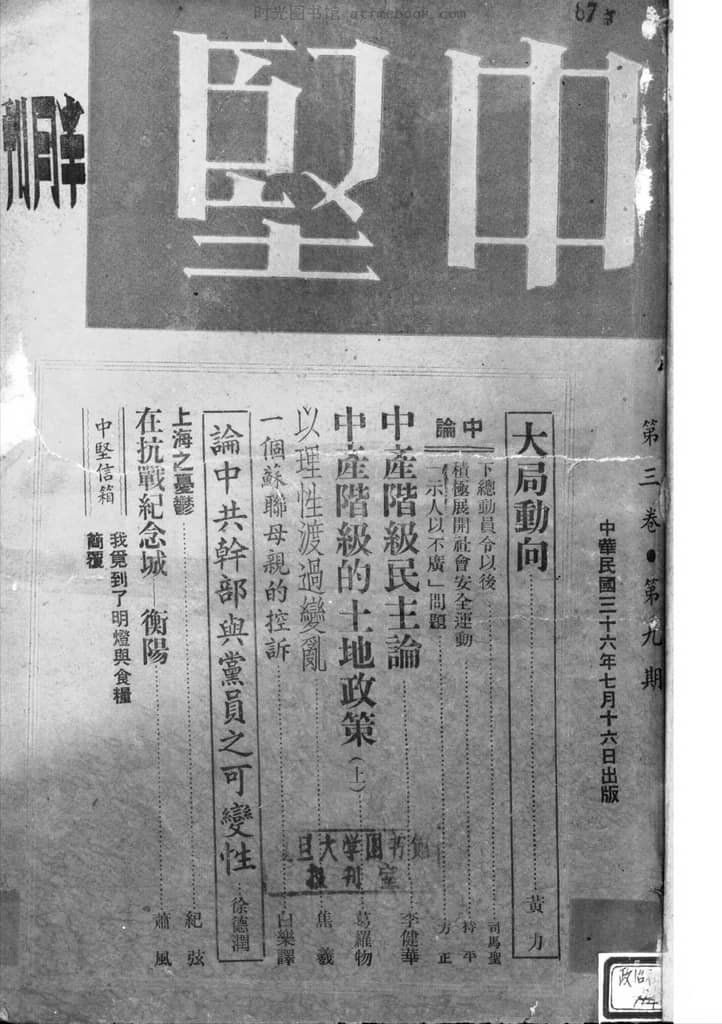 时光图书馆 atmebook.com
中堅
半月刊
第三卷•第九期
中華民國三十六年七月十六日出版
大局動向 黃力
中論
下總動員令以後 司馬聖
積極展開社會安全運動 持平
「示人以不廣」問題 方正
中產階級民主論 李健華
中產階級的土地政策(上) 葛羅物
以理性渡過變亂 焦羲
一個蘇聯母親的控訴 白樂譯
論中共幹部與黨員之可變性 徐德潤
上海之憂鬱 紀弦
在抗戰紀念城—衡陽 蕭風
中堅信箱
我覓到了明燈與食糧
簡覆
旦大学图书馆
报刊室
政治